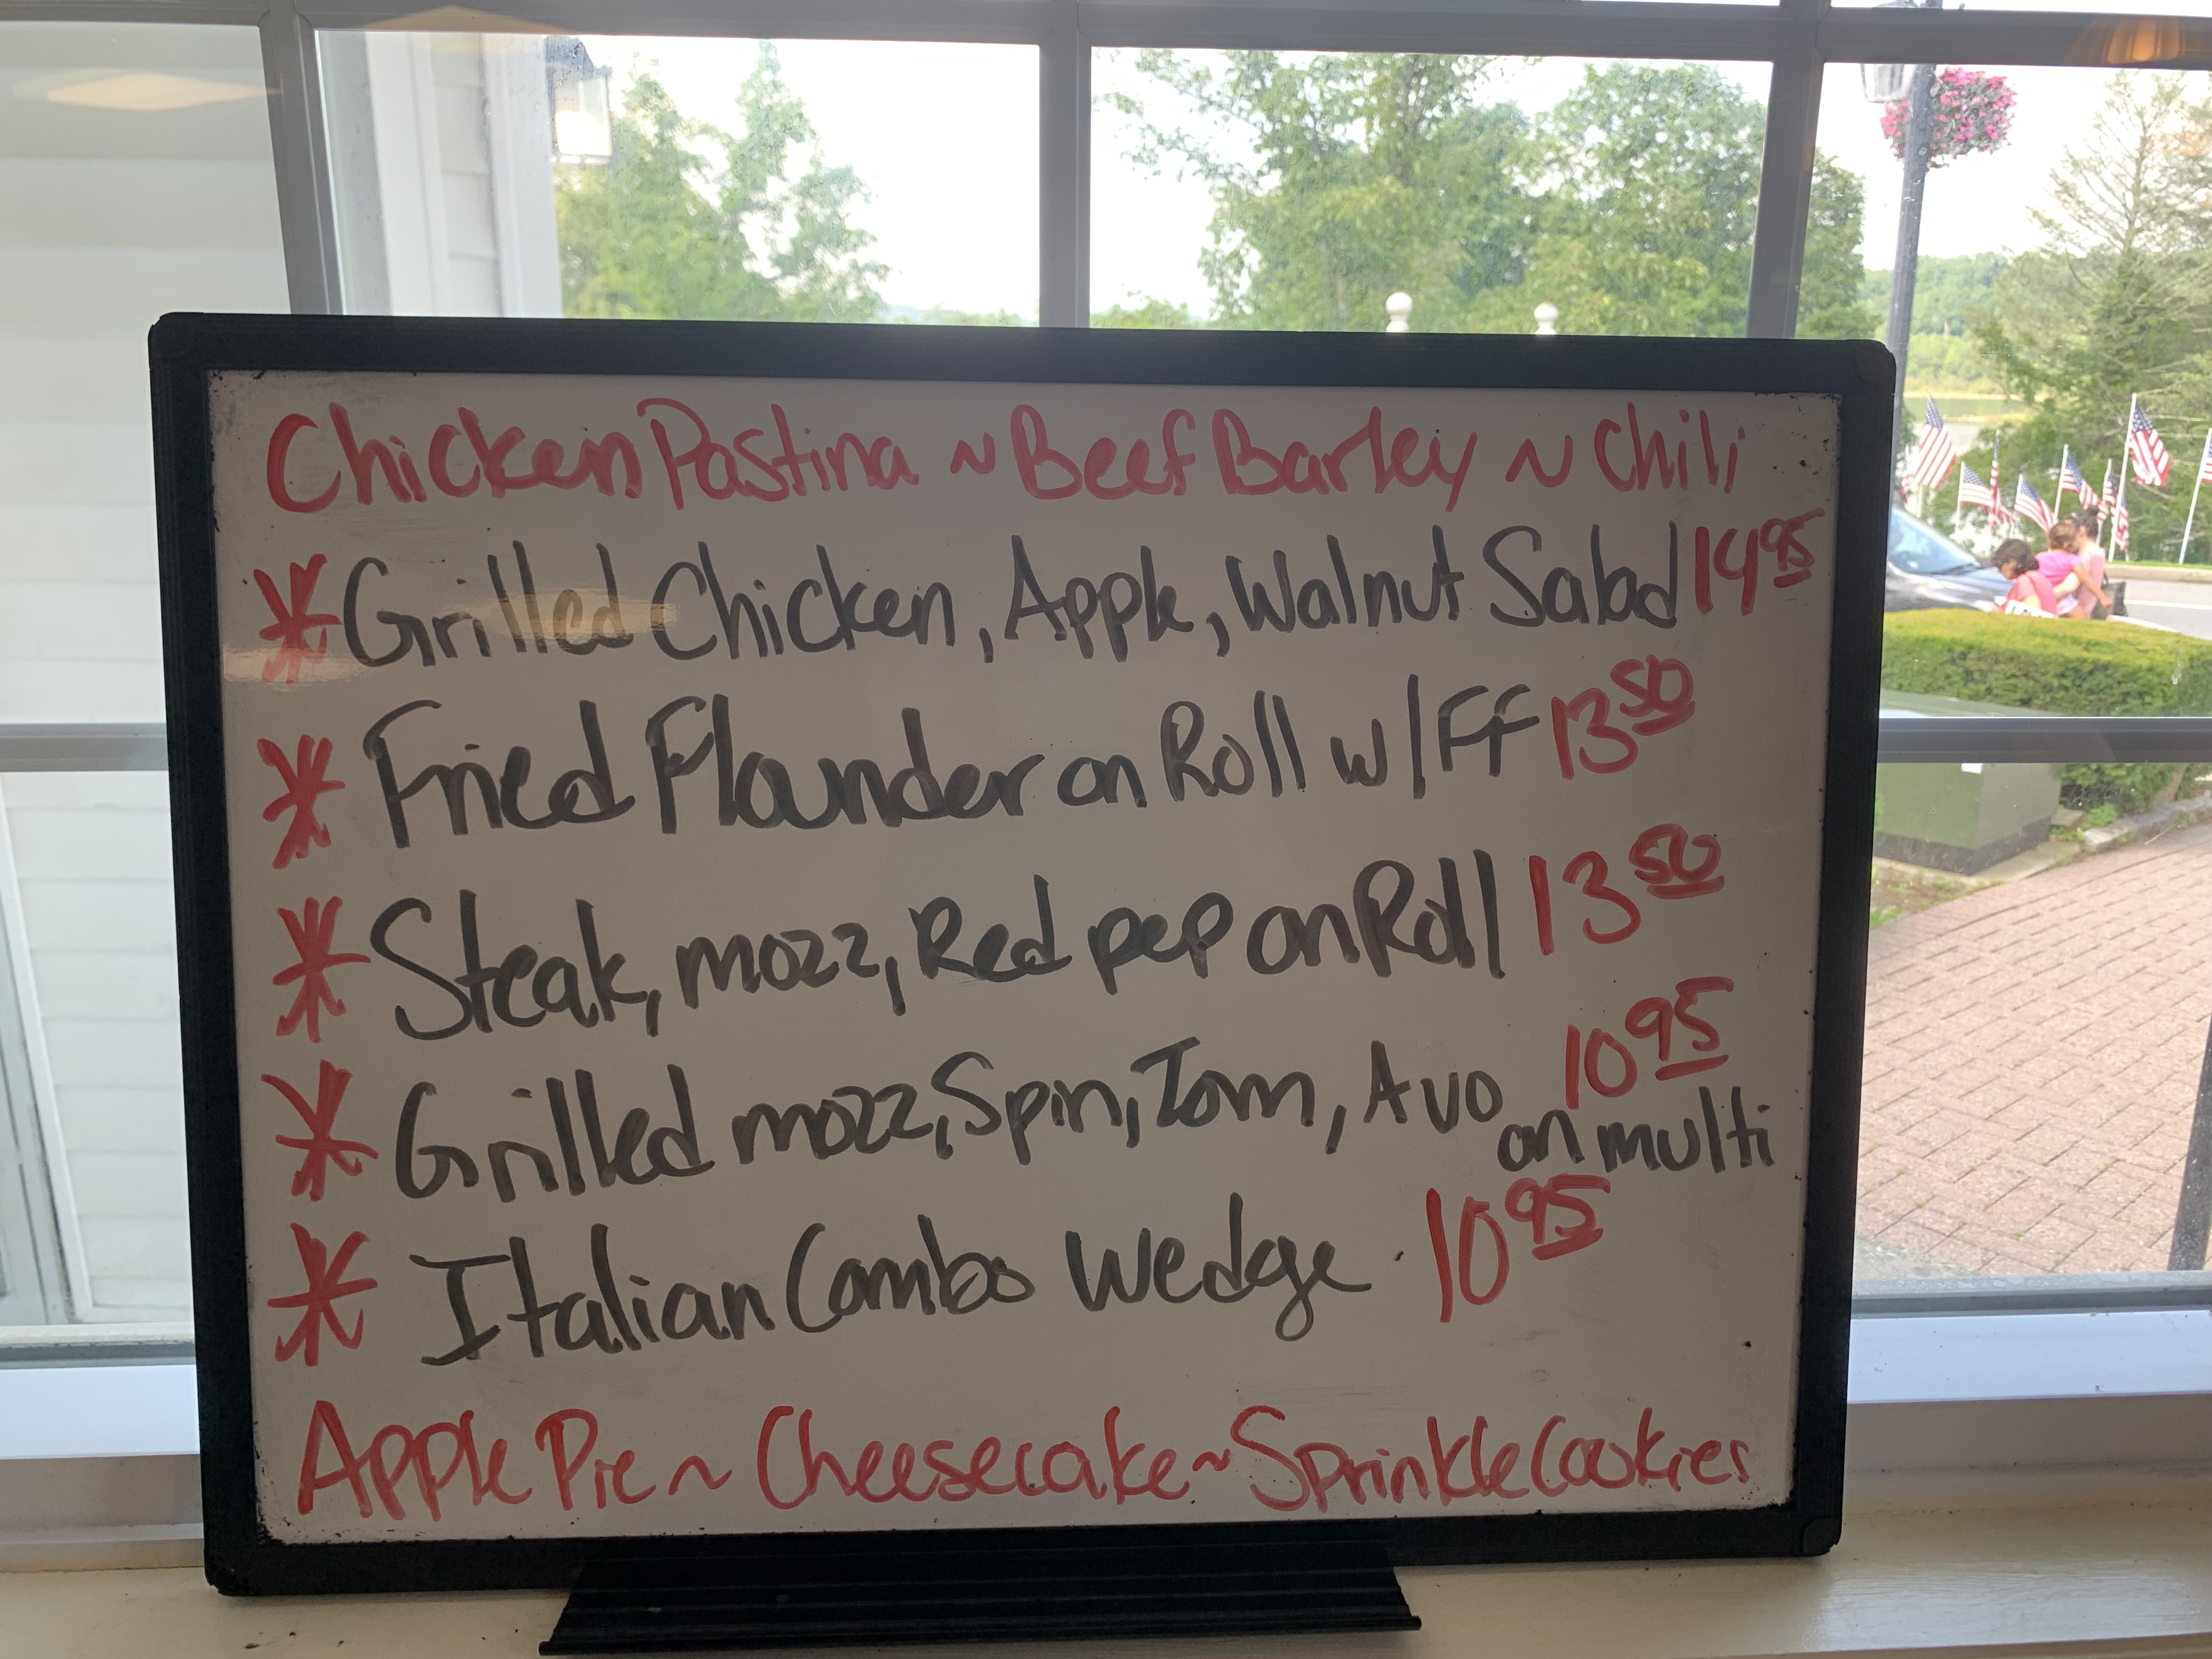 Chicken Pastina ~ Beef Barley ~ Chili
* Grilled Chicken, Apple, Walnut Salad 14 95
* Fried Flounder on Roll w/FF 13 50
* Steak, mozz, Red pep on Roll 13 50
* Grilled mozz, Spin, Tom, Avo 10 95
on multi
* Italian Combo Wedge 10 95
Apple Pie ~ Cheesecake ~ Sprinkle Cookies